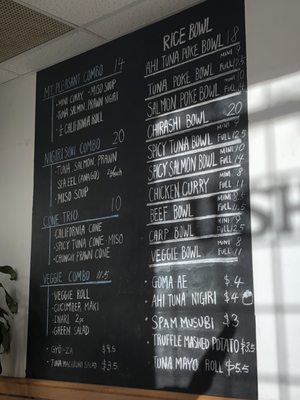 MT. PLEASANT COMBO 14
• MINI CURRY • MISO SOUP
• TUNA. SALMON. PRAWN NIGIRI
• ½ CALIFORNIA ROLL
NIGIRI SUSHI COMBO 20
• TUNA. SALMON. PRAWN
SEA EEL (ANAGO)
• MISO SOUP
CONE TRIO 10
• CALIFORNIA CONE
• SPICY TUNA CONE • MISO
• CRUNCHY PRAWN CONE
VEGGIE COMBO 11.5
• VEGGIE ROLL
• CUCUMBER MAKI
• INARI 2PC
• GREEN SALAD
• GYO-ZA $4.5
• TUNA MACARONI SALAD $3.5
RICE BOWL
AHI TUNA POKE BOWL 18
TUNA POKE BOWL MINI 9
SALMON POKE BOWL
CHIRASHI BOWL 20
SPICY TUNA BOWL
SPICY SALMON BOWL
CHICKEN CURRY MINI 8 FULL 11
BEEF BOWL
CARP BOWL
VEGGIE BOWL MINI 8 FULL 11
• GOMA AE $4
• AHI TUNA NIGIRI $4
• SPAM MUSUBI $3
• TRUFFLE MASHED POTATO $3.5
• TUNA MAYO ROLL $5.5